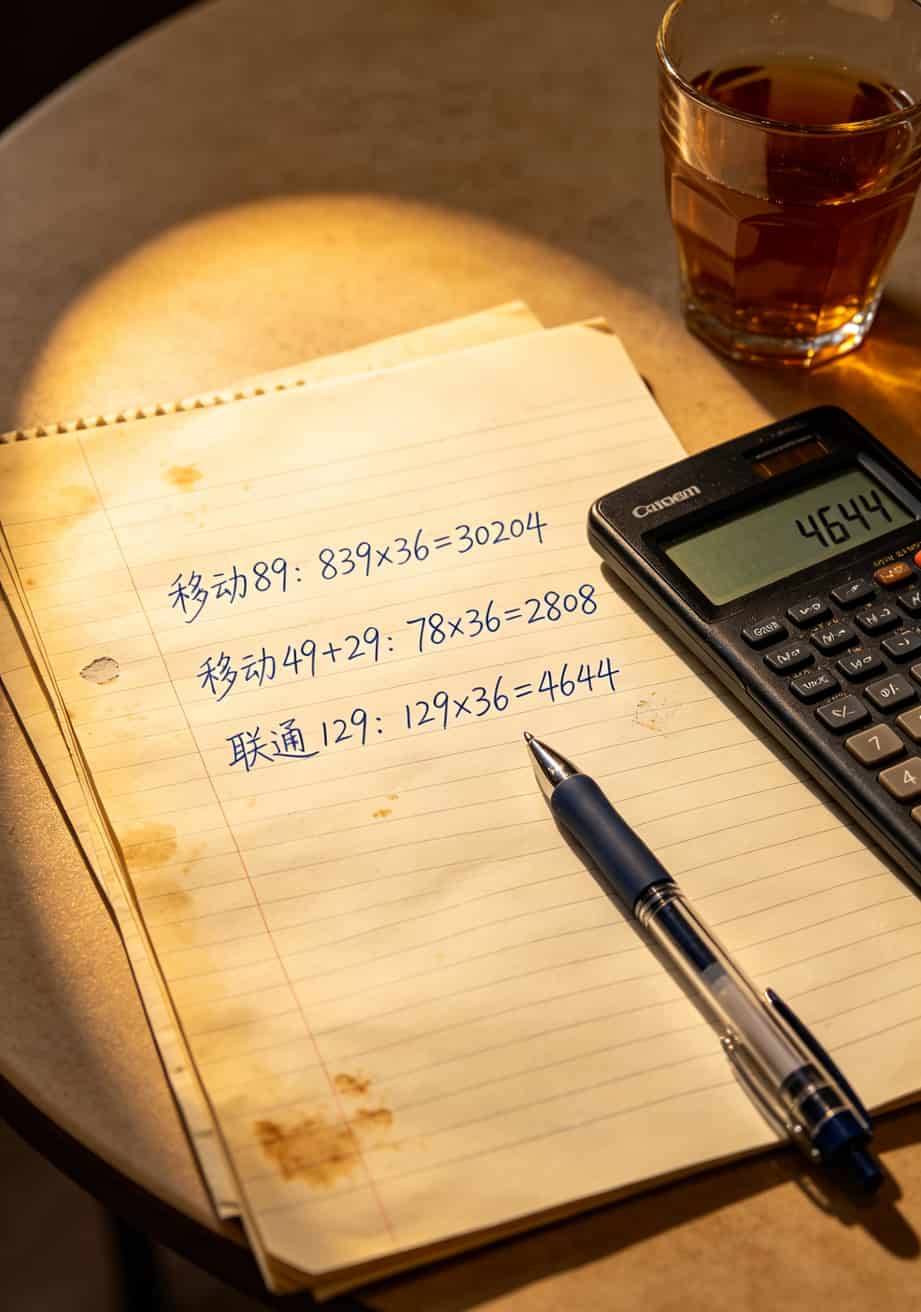 移动89: 839×36=30204
移动49+29: 78×36=2808
联通129: 129×36=4644
4644
7
4